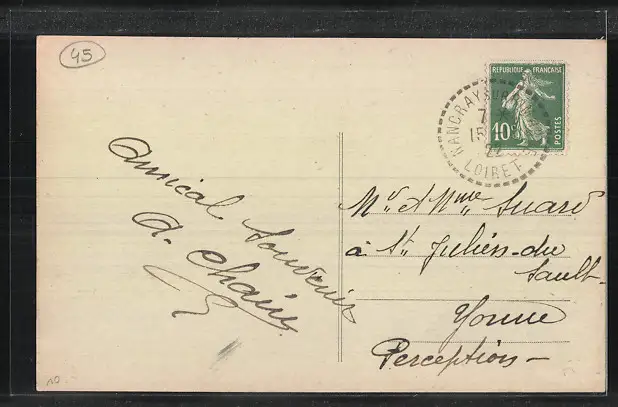 45
REPUBLIQUE FRANÇAISE
10c
POSTES
NANCRAY SUR
LOIRET
22
Amical Souvenir
A. Chain
Mr et Mme Suard
à St Julien-du
Sault-
Yonne
Perception-